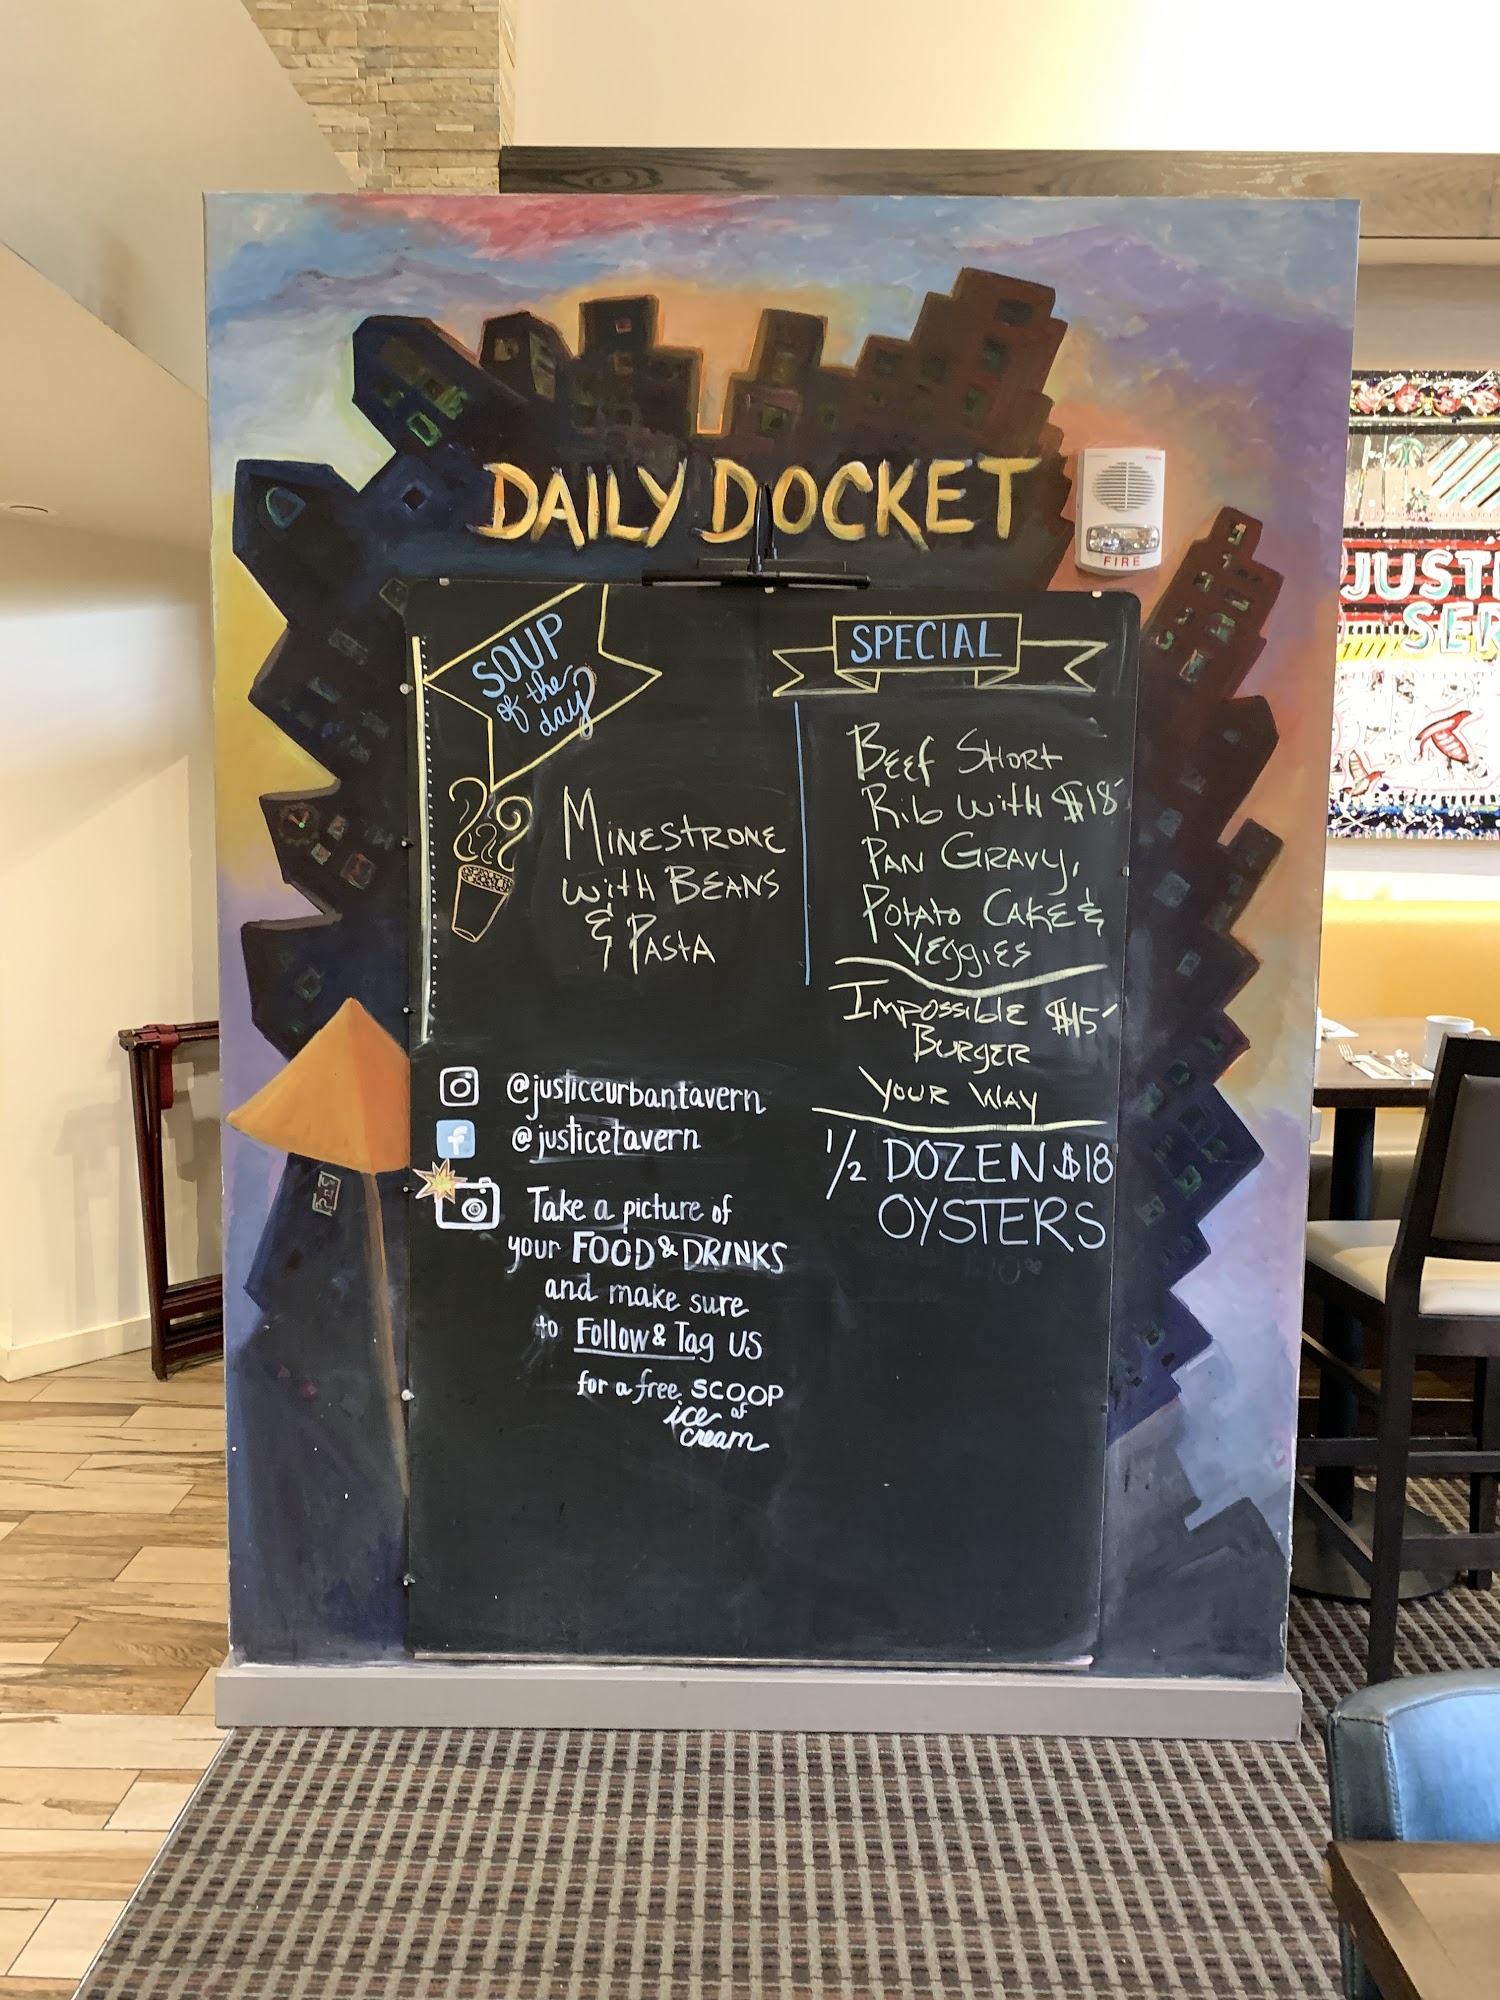 DAILY DOCKET
FIRE
SOUP
of the
day
MINESTRONE
WITH BEANS
& PASTA
SPECIAL
BEEF SHORT
RIB WITH $18
PAN GRAVY,
POTATO CAKE &
VEGGIES
IMPOSSIBLE $15
BURGER
YOUR WAY
1/2 DOZEN $18
OYSTERS
@justiceurbantavern
f
@justicetavern
Take a picture of
your FOOD & DRINKS
and make sure
to Follow & Tag US
for a free SCOOP
of
ice
cream
JUSTI
SER